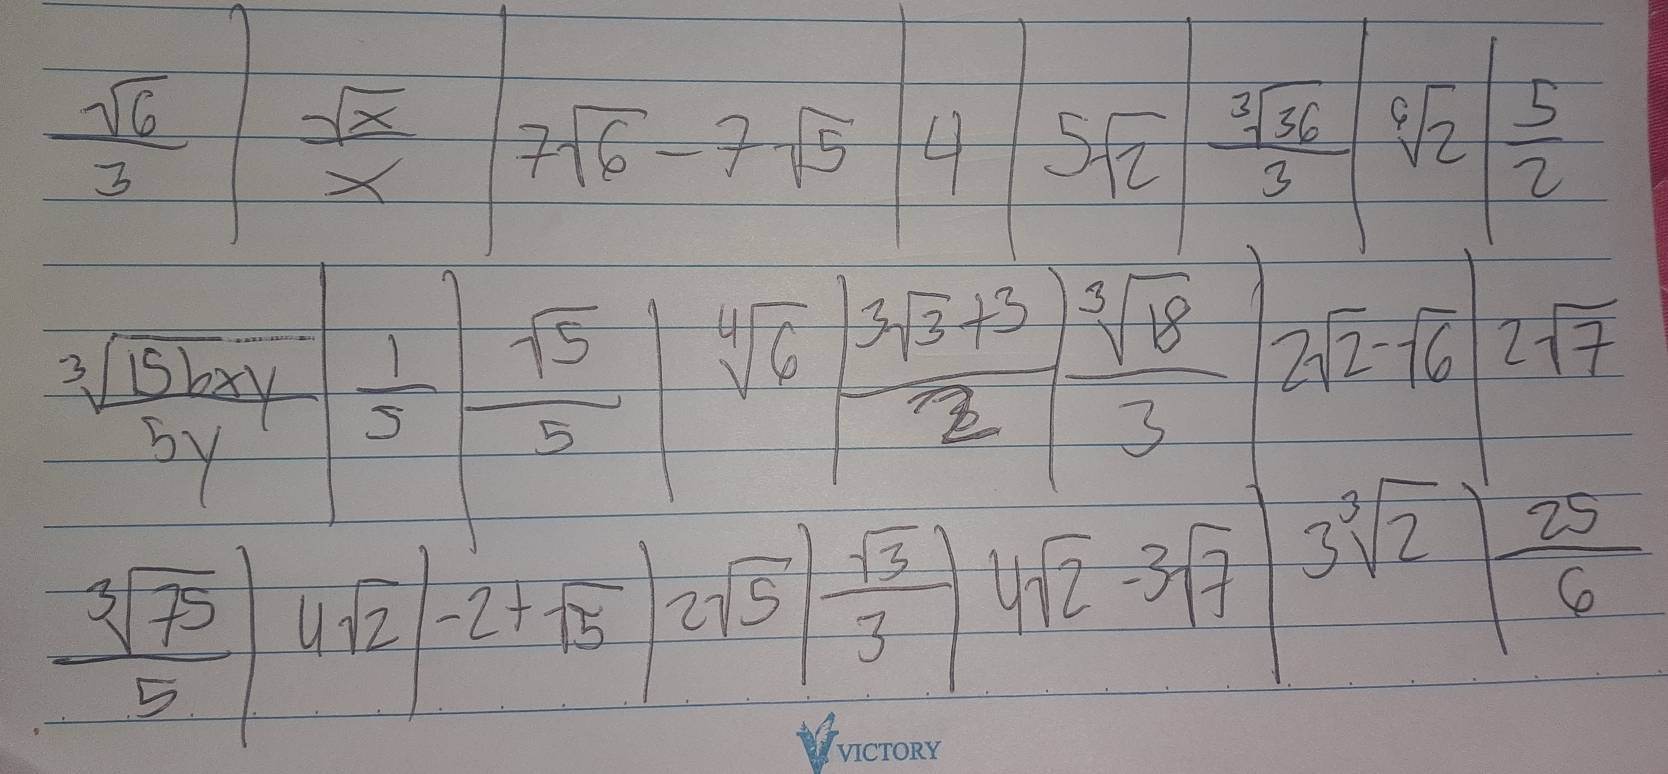 √6/3 | √x/x | 7√6 - 7√5 | 4 | 5√2 | ∛36/3 | ⁶√2 | 5/2
∛15bxy/5y | 1/5 | √5/5 | ∜6 | 3√3+3/2 | ∛18/3 | 2√2-√6 | 2√7
∛75/5 | 4√2 | -2+√5 | 2√5 | √3/3 | 4√2-3√7 | 3∛2 | 25/6
VICTORY